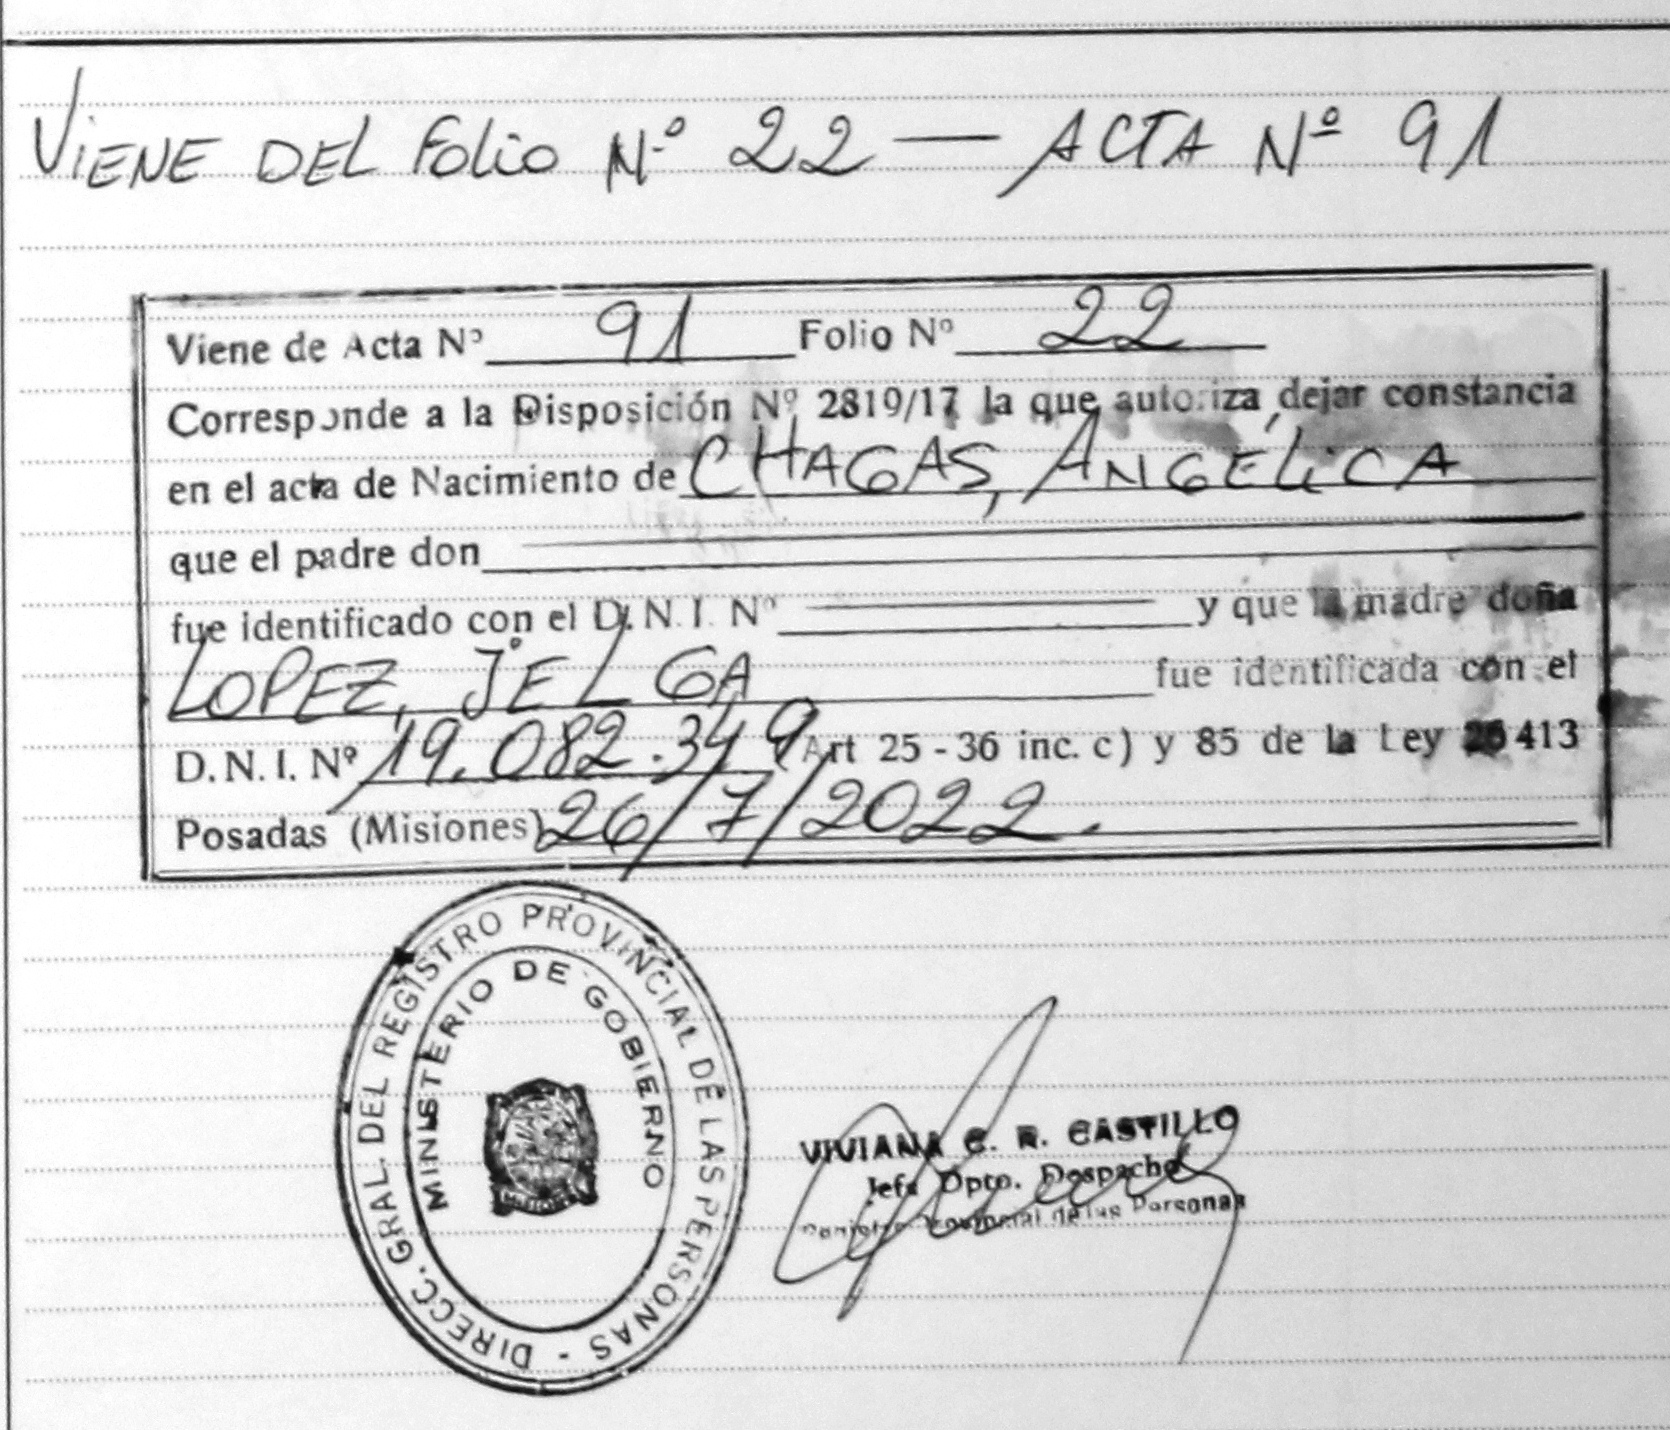 VIENE DEL FOLIO Nº 22 — ACTA Nº 91
Viene de Acta Nº 91 Folio Nº 22
Corresponde a la Disposición Nº 2819/17 la que autoriza dejar constancia
en el acta de Nacimiento de CHAGAS, ANGÉLICA
que el padre don
fue identificado con el D.N.I. Nº y que la madre doña
LOPEZ, JELGA fue identificada con el
D.N.I. Nº 19.082.349 (Art 25 - 36 inc. c) y 85 de la Ley 26413
Posadas (Misiones) 26/7/2022.
DIRECC. GRAL. DEL REGISTRO PROVINCIAL DE LAS PERSONAS -
MINISTERIO DE GOBIERNO
VIVIANA C. R. CASTILLO
Jefa Dpto. Despacho
Provincial de las Personas